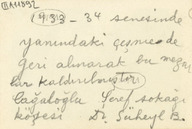 1933-34 senesinde
yanındaki çeşmeden
geri alınarak bu mezar
kaldırılmıştır
Cağaloğlu Şeref sokağı
köşesi Dr. Süheyl B.